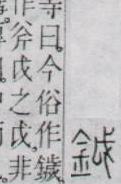 鉞
等曰。今俗作鐬。
作斧戉之戉。非